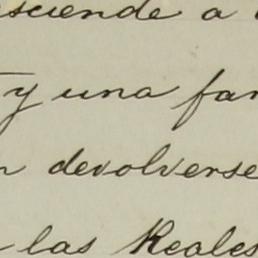 sciende a
y una far
n devolverse
las Reales